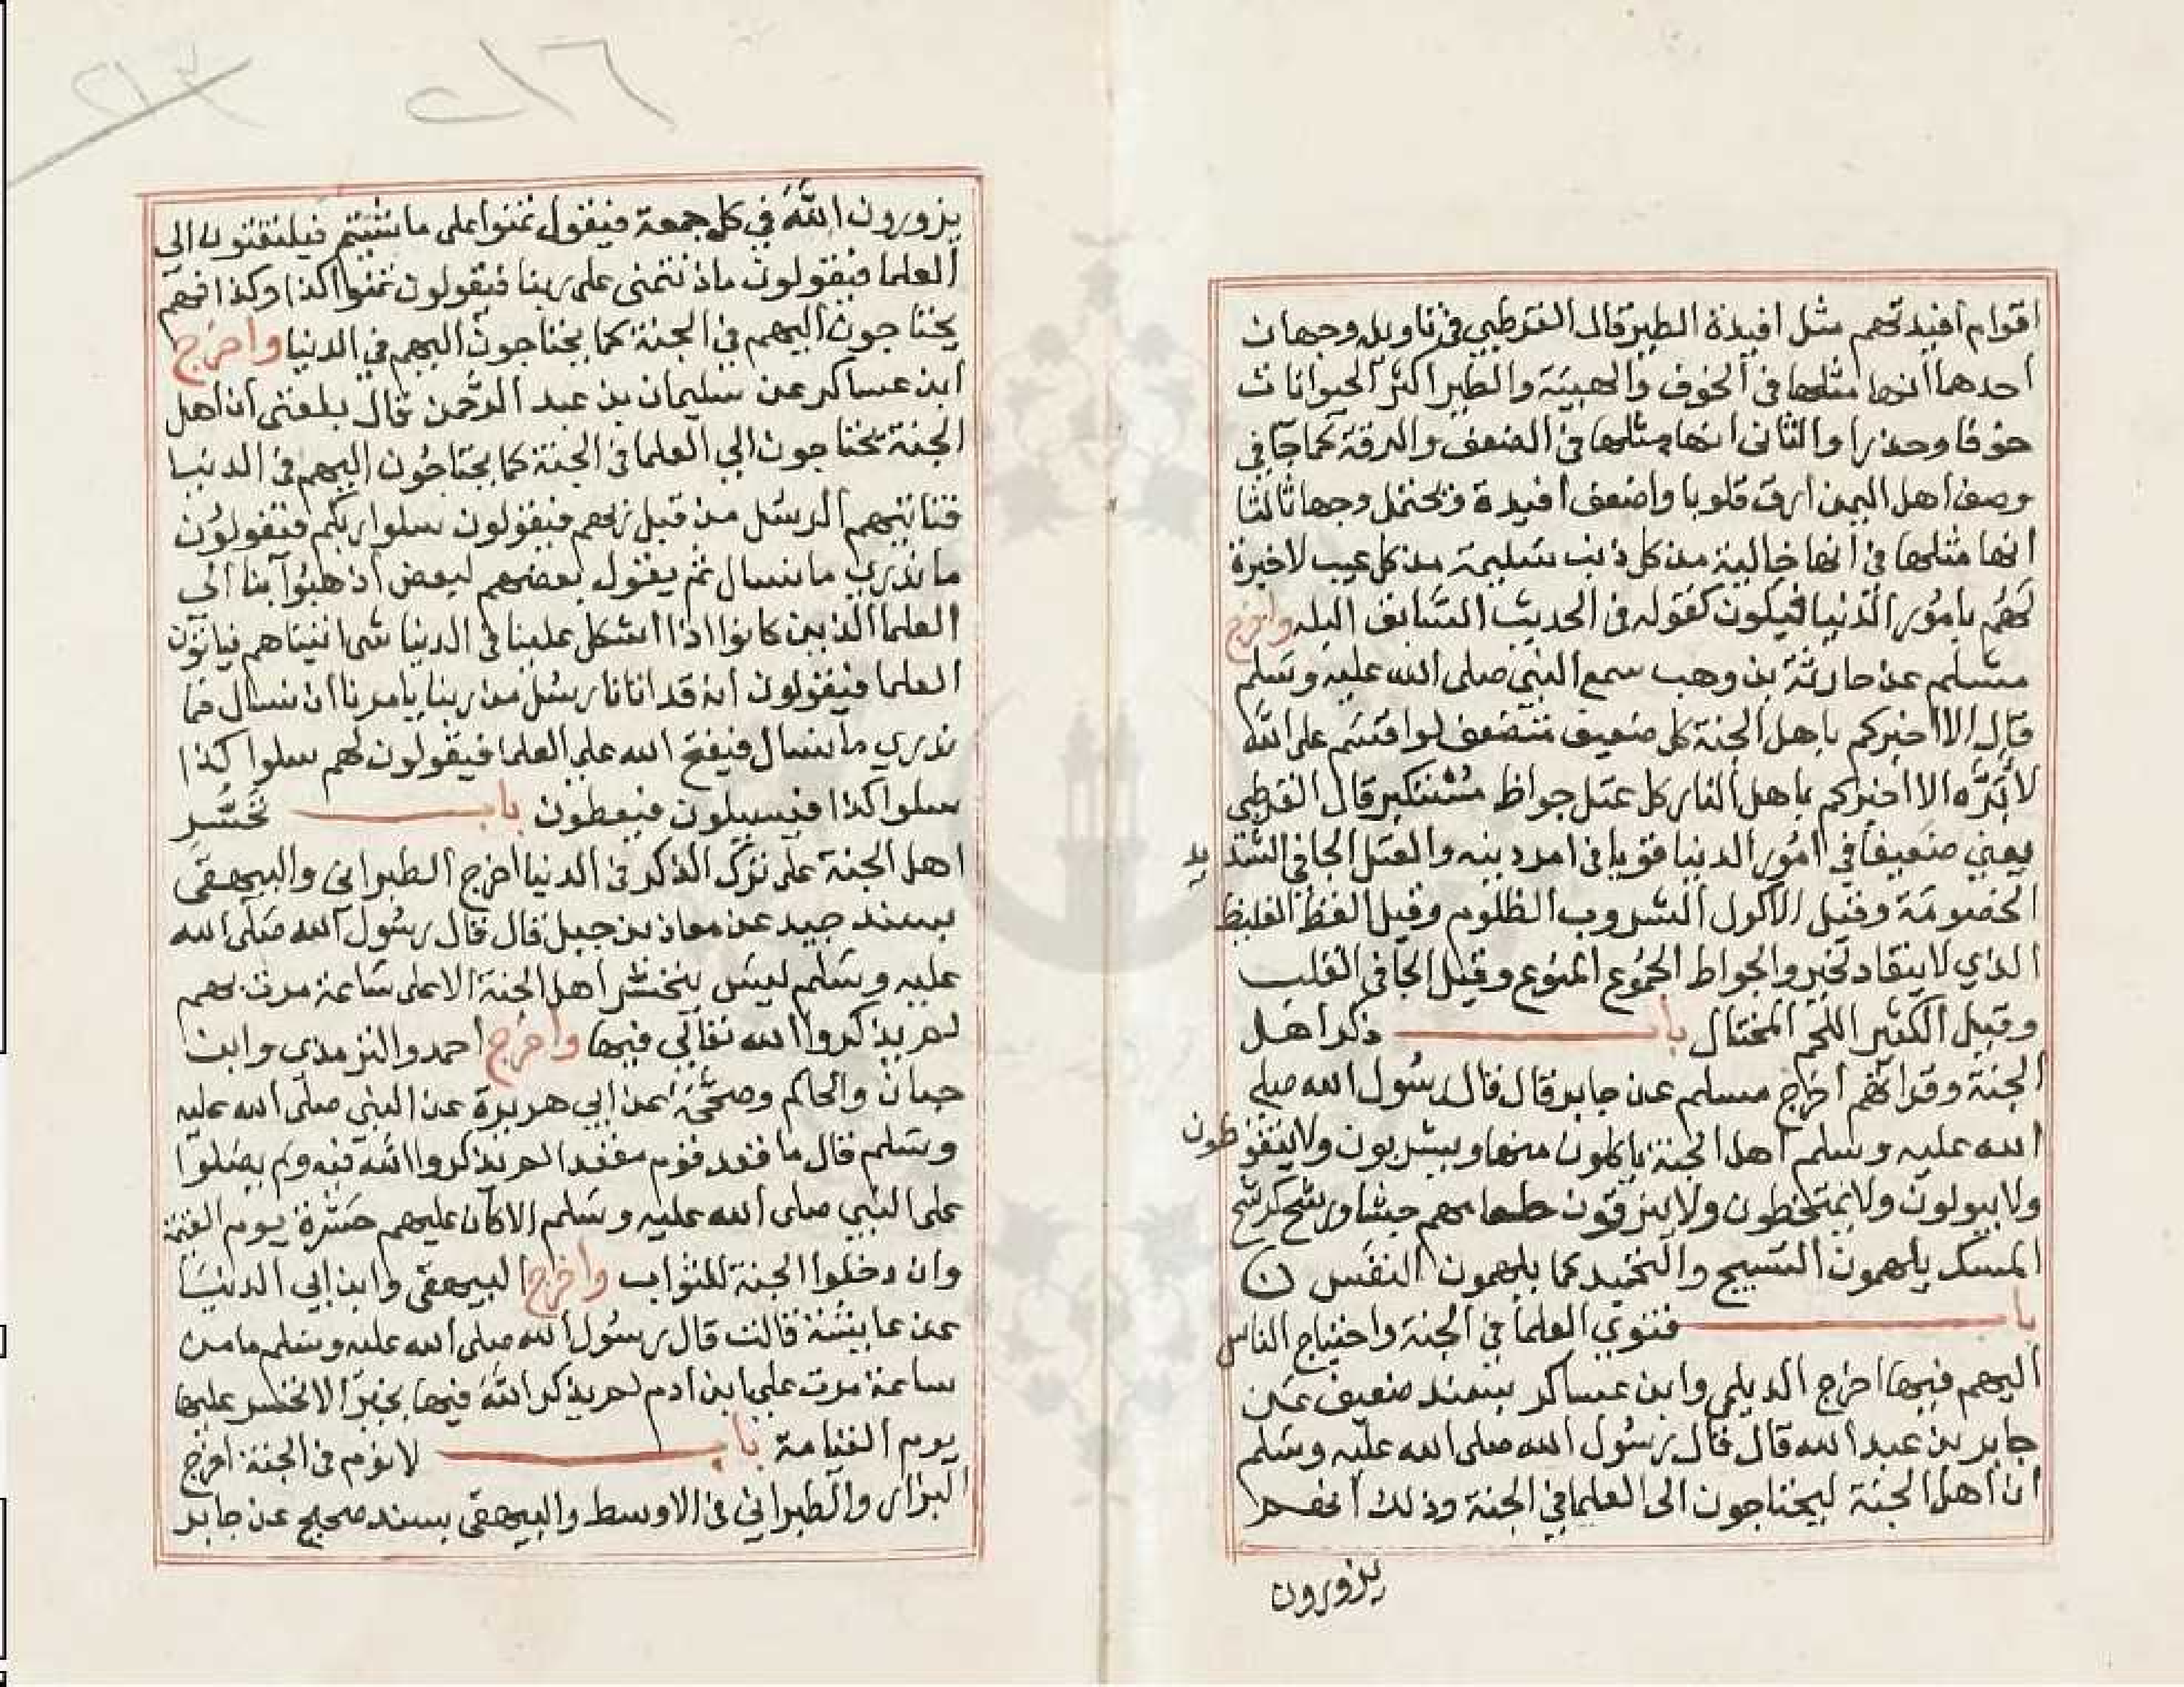 اقوام افيدتهم مثل افيدة الطير قال القرطبي في تاويله وجهان
احدهما انها مثلها في الخوف والهيبة والطير اكثر الحيوانات
خوفا وحذرا والثاني انها مثلها في الضعف والرقة كما جآ في
وصف اهل اليمن ارق قلوبا واضعف افيدة ويحتمل وجها ثالثا
انها مثلها في انها خالية من كل ذنب سليمة من كل عيب لا خبرة
لهم بامور الدنيا فيكون كقوله في الحديث السابق البله واخرج
مسلم عن حارثة بن وهب سمع النبي صلى الله عليه وسلم
قال الا اخبركم باهل الجنة كل ضعيف متضعف لو اقسم على الله
لابره الا اخبركم باهل النار كل عتل جواظ مستكبر قال القرطبي
يعني ضعيفا في امور الدنيا قويا في امر دينه والعتل الجافي الشديد
الخصومة وقيل الاكول الشروب الظلوم وقيل الفظ الغليظ
الذي لا ينقاد لخير والجواظ الجموع المنوع وقيل الجافي القلب
وقيل الكثير اللحم المختال باب ذكر اهل
الجنة وقراتهم اخرج مسلم عن جابر قال قال رسول الله صلى
الله عليه وسلم اهل الجنة ياكلون منها ويشربون ولا يتغوطون
ولا يبولون ولا يمتخطون ولا يبزقون طعامهم جشا ورشح كرشح
المسك يلهمون التسبيح والتحميد كما يلهمون النفس
باب فتوي العلما في الجنة واحتياج الناس
اليهم فيها اخرج الديلمي وابن عساكر بسند ضعيف عن
جابر بن عبد الله قال قال رسول الله صلى الله عليه وسلم
ان اهل الجنة ليحتاجون الى العلما في الجنة وذلك انهم
يزورون
يزورون الله في كل جمعة فيقول تمنوا على ما شيتم فيلتفتون الى
العلما فيقولون ماذ نتمنى على ربنا فيقولون تمنوا كذا وكذا فهم
يحتاجون اليهم في الجنة كما يحتاجون اليهم في الدنيا واخرج
ابن عساكر عن سليمان بن عبد الرحمن قال بلغني ان اهل
الجنة يحتاجون الي العلما في الجنة كما يحتاجون اليهم في الدنيا
فتاتيهم الرسل من قبل ربهم فيقولون سلوا ربكم فيقولون
ما ندري ما نسال ثم يقول بعضهم لبعض اذهبوا بنا الى
العلما الذين كانوا اذا اشكل علينا في الدنيا شي اتيناهم فياتون
العلما فيقولون انه قد اتانا رسل من ربنا يامرنا ان نسال فما
ندري ما نسال فيفتح الله على العلما فيقولون لهم سلوا كذا
سلوا كذا فيسيلون فيعطون باب تحسر
اهل الجنة على ترك الذكر في الدنيا اخرج الطبراني والبيهقي
بسند جيد عن معاذ بن جبل قال قال رسول الله صلى الله
عليه وسلم ليس يتحسر اهل الجنة الا على ساعة مرت بهم
لم يذكروا الله تعالي فيها واخرج احمد والترمذي وابن
حبان والحاكم وصححه عن ابي هريرة عن النبي صلى الله عليه
وسلم قال ما قعد قوم مقعدا لم يذكروا الله فيه ولم يصلوا
على النبي صلى الله عليه وسلم الا كان عليهم حسرة يوم القيمة
وان دخلوا الجنة للثواب واخرج البيهقي وابن ابي الدنيا
عن عايشة قالت قال رسول الله صلى الله عليه وسلم ما من
ساعة مرت على ابن ادم لم يذكر الله فيها بخير الا تحسر عليها
يوم القيامة باب لا نوم في الجنة اخرج
البزار والطبراني في الاوسط والبيهقي بسند صحيح عن جابر